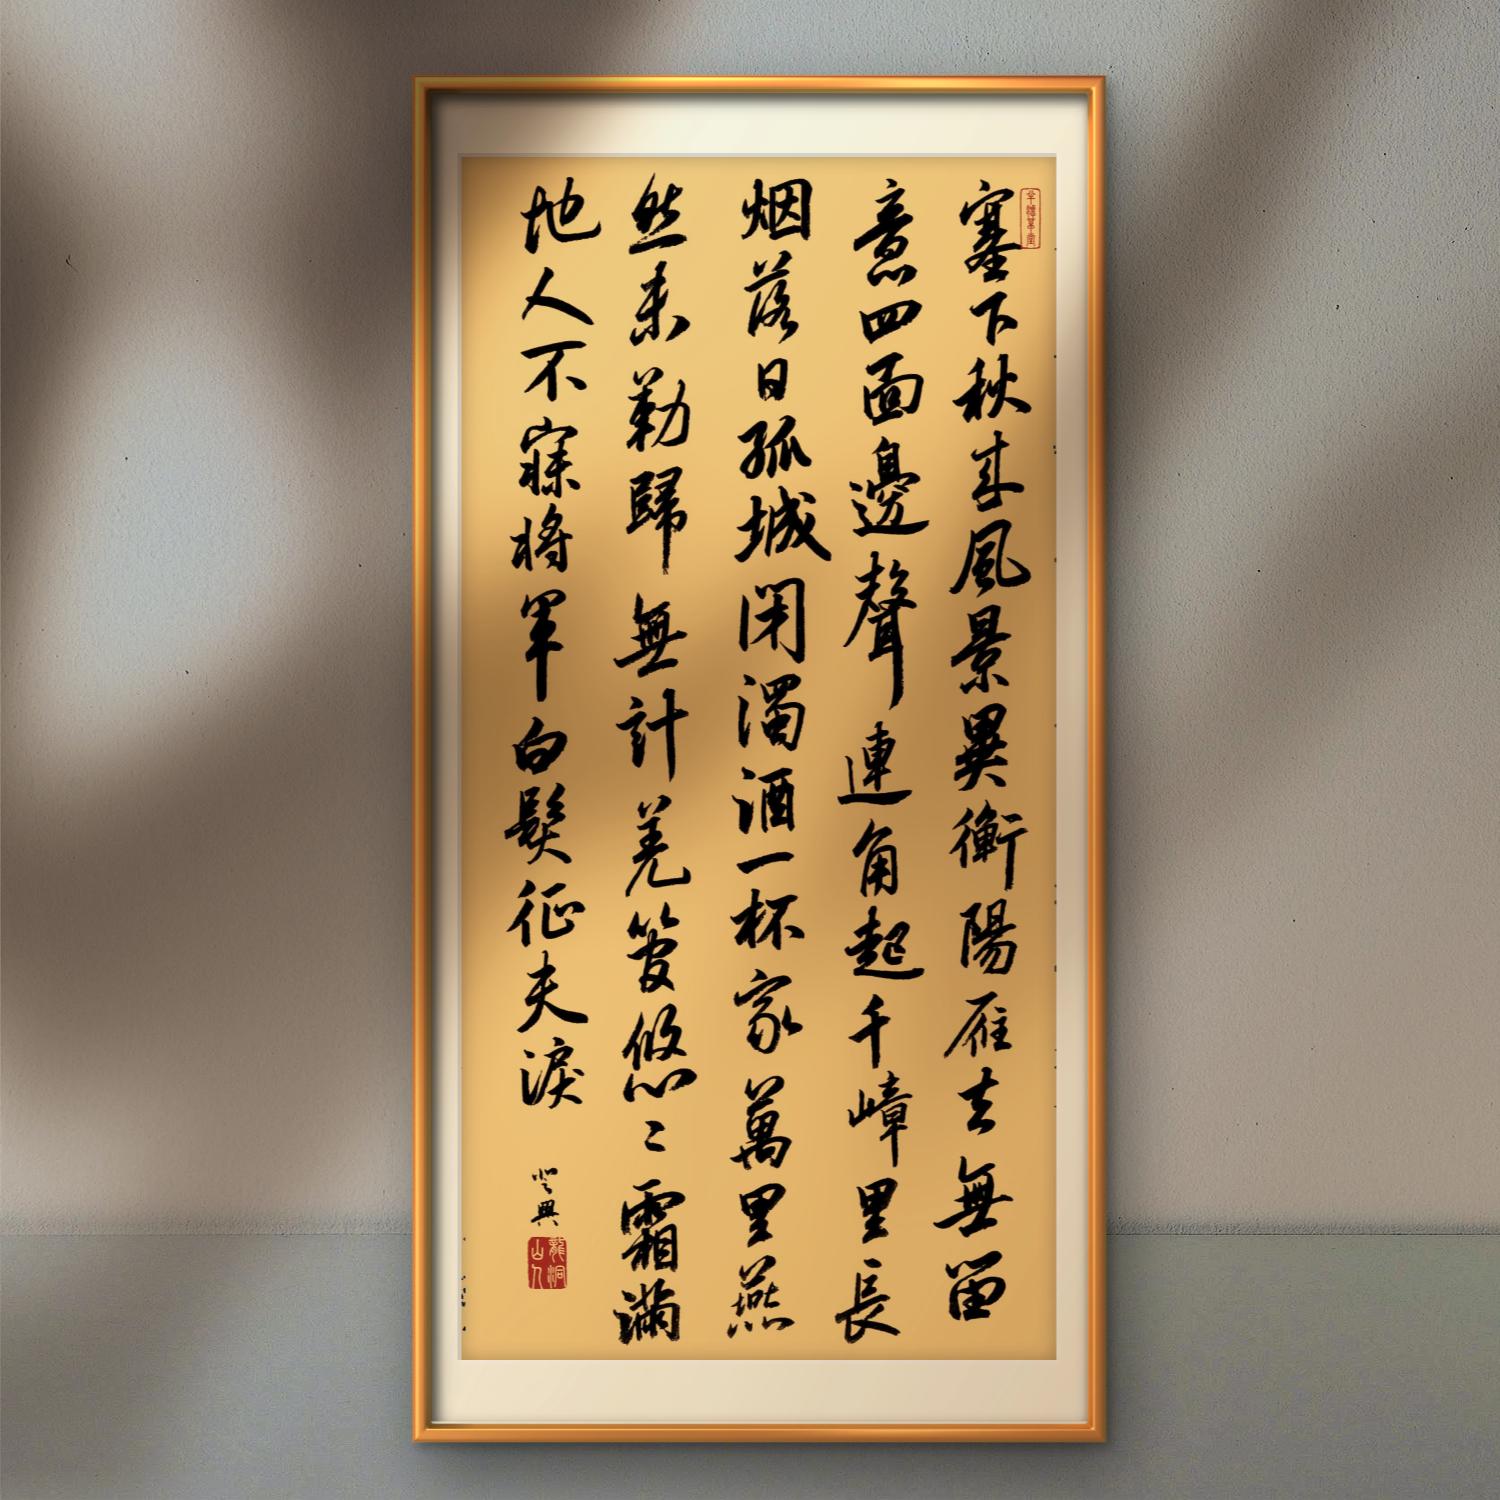 塞下秋来風景異衡陽雁去無留
意四面邊聲連角起千嶂里長
烟落日孤城閉濁酒一杯家萬里燕
然未勒歸無計羌管悠々霜滿
地人不寐將軍白髮征夫淚
興
龍洞山人